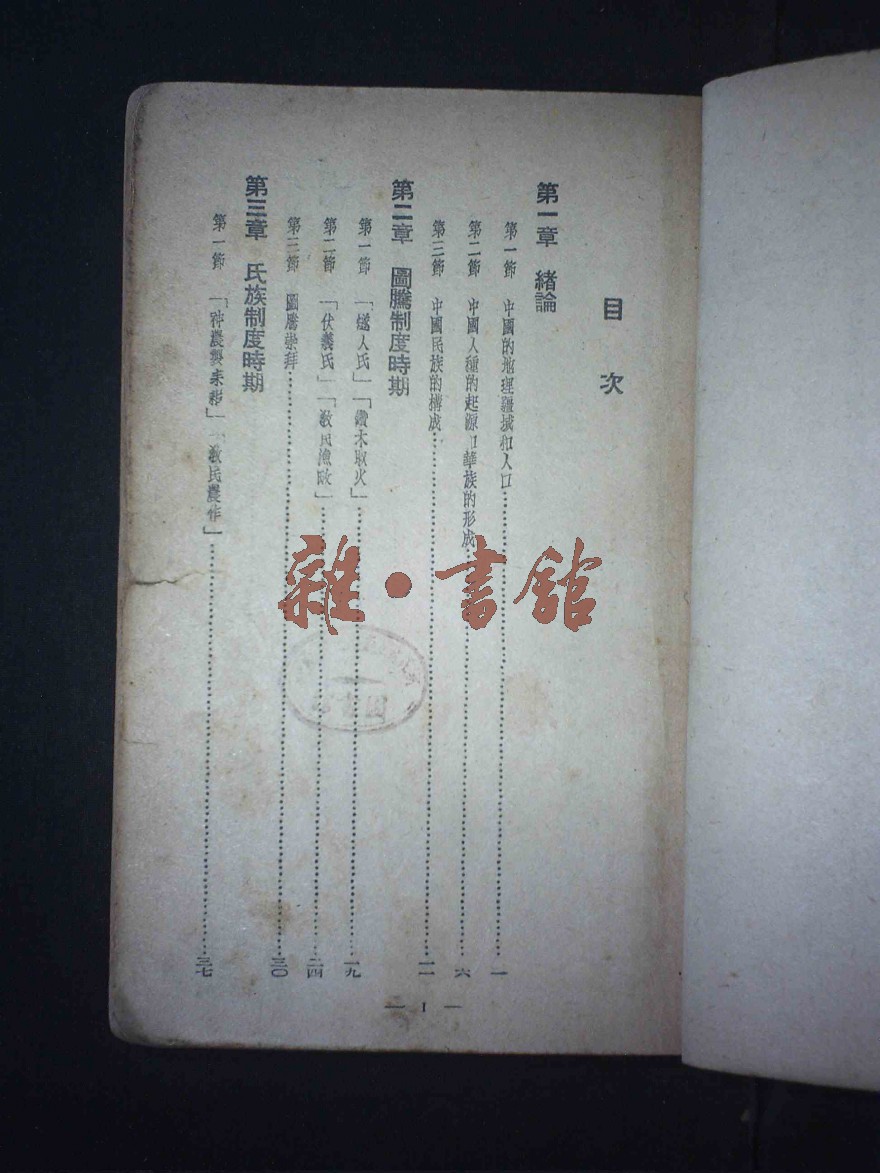 目次
第一章 緒論
第一節 中國的地理疆域和人口…………一
第二節 中國人種的起源和華族的形成…………六
第三節 中國民族的構成…………一一
第二章 圖騰制度時期
第一節 「燧人氏」「鑽木取火」…………一九
第二節 「伏羲氏」「敎民漁畋」…………二四
第三節 圖騰崇拜…………三〇
第三章 氏族制度時期
第一節 「神農製耒耜」「敎民農作」…………三七
— 1 —
雜·書館